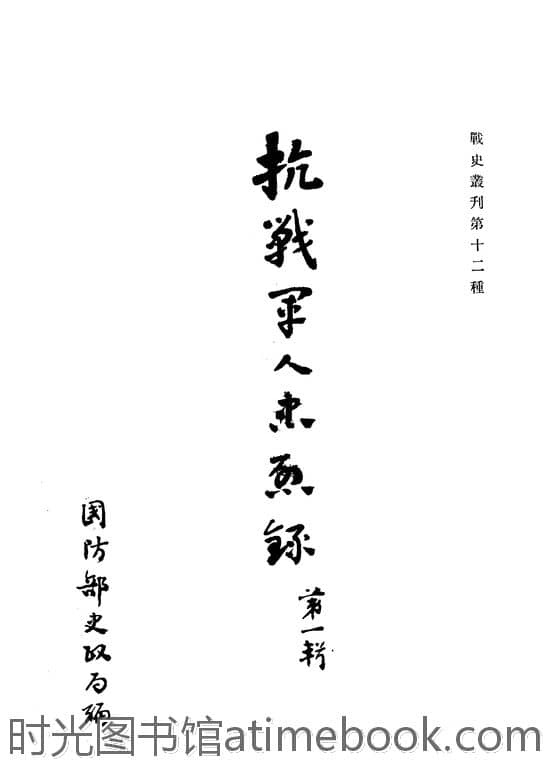 戰史叢刊第十二種
抗戰軍人忠烈錄
第一輯
国防部史政局編
时光图书馆atimebook.com